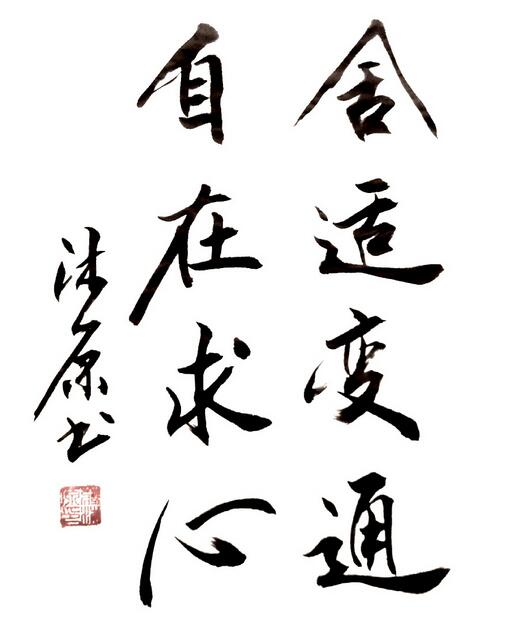 舍适变通
自在求心
沐原书